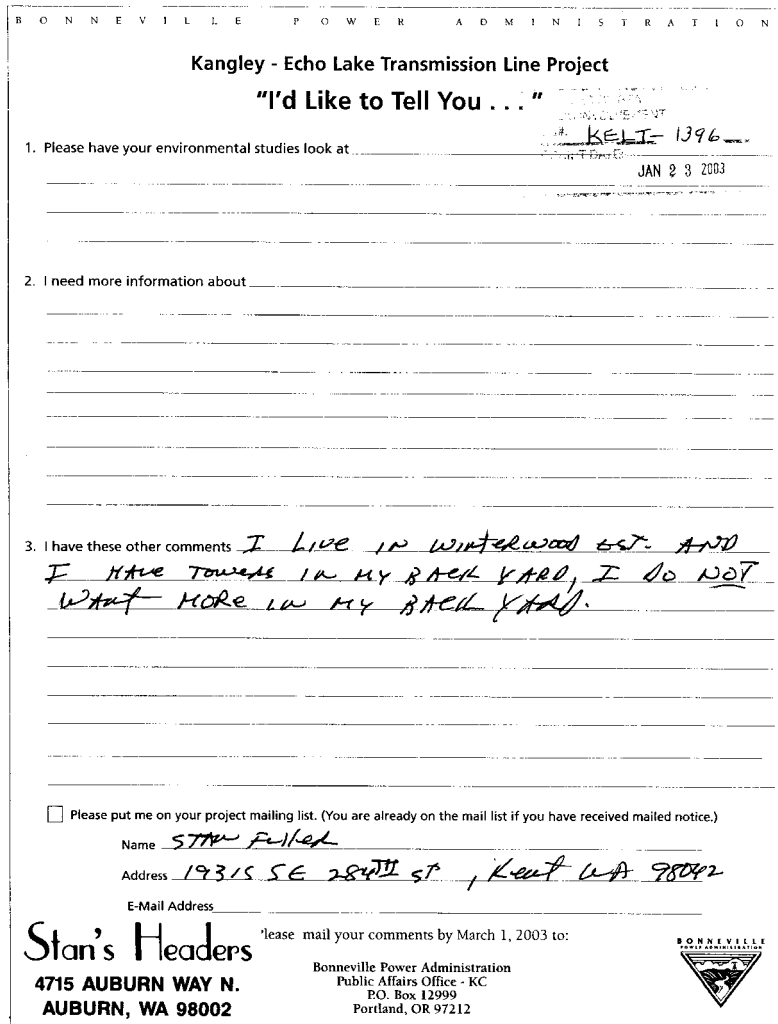 BONNEVILLE POWER ADMINISTRATION
Kangley - Echo Lake Transmission Line Project
"I'd Like to Tell You . . . "
KELT- 1396
1. Please have your environmental studies look at
JAN 2 3 2003
2. I need more information about
3. I have these other comments I LIVE IN WINTERWOOD EST. AND
I HAVE TOWERS IN MY BACK YARD, I DO NOT
WANT MORE IN MY BACK YARD.
Please put me on your project mailing list. (You are already on the mail list if you have received mailed notice.)
Name STAN Fuller
Address 19315 SE 284TH ST, Kent WA 98042
E-Mail Address
Stan's Headers
4715 AUBURN WAY N.
AUBURN, WA 98002
lease mail your comments by March 1, 2003 to:
Bonneville Power Administration
Public Affairs Office - KC
P.O. Box 12999
Portland, OR 97212
BONNEVILLE
POWER ADMINISTRATION